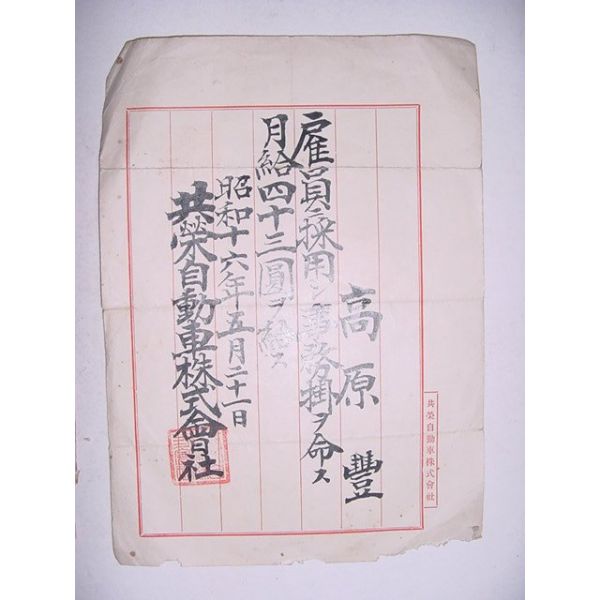 高原豐
雇員ニ採用シ事務掛ヲ命ス
月給四十三圓ヲ給ス
昭和十六年五月二十一日
共榮自動車株式會社
共榮自動車株式會社